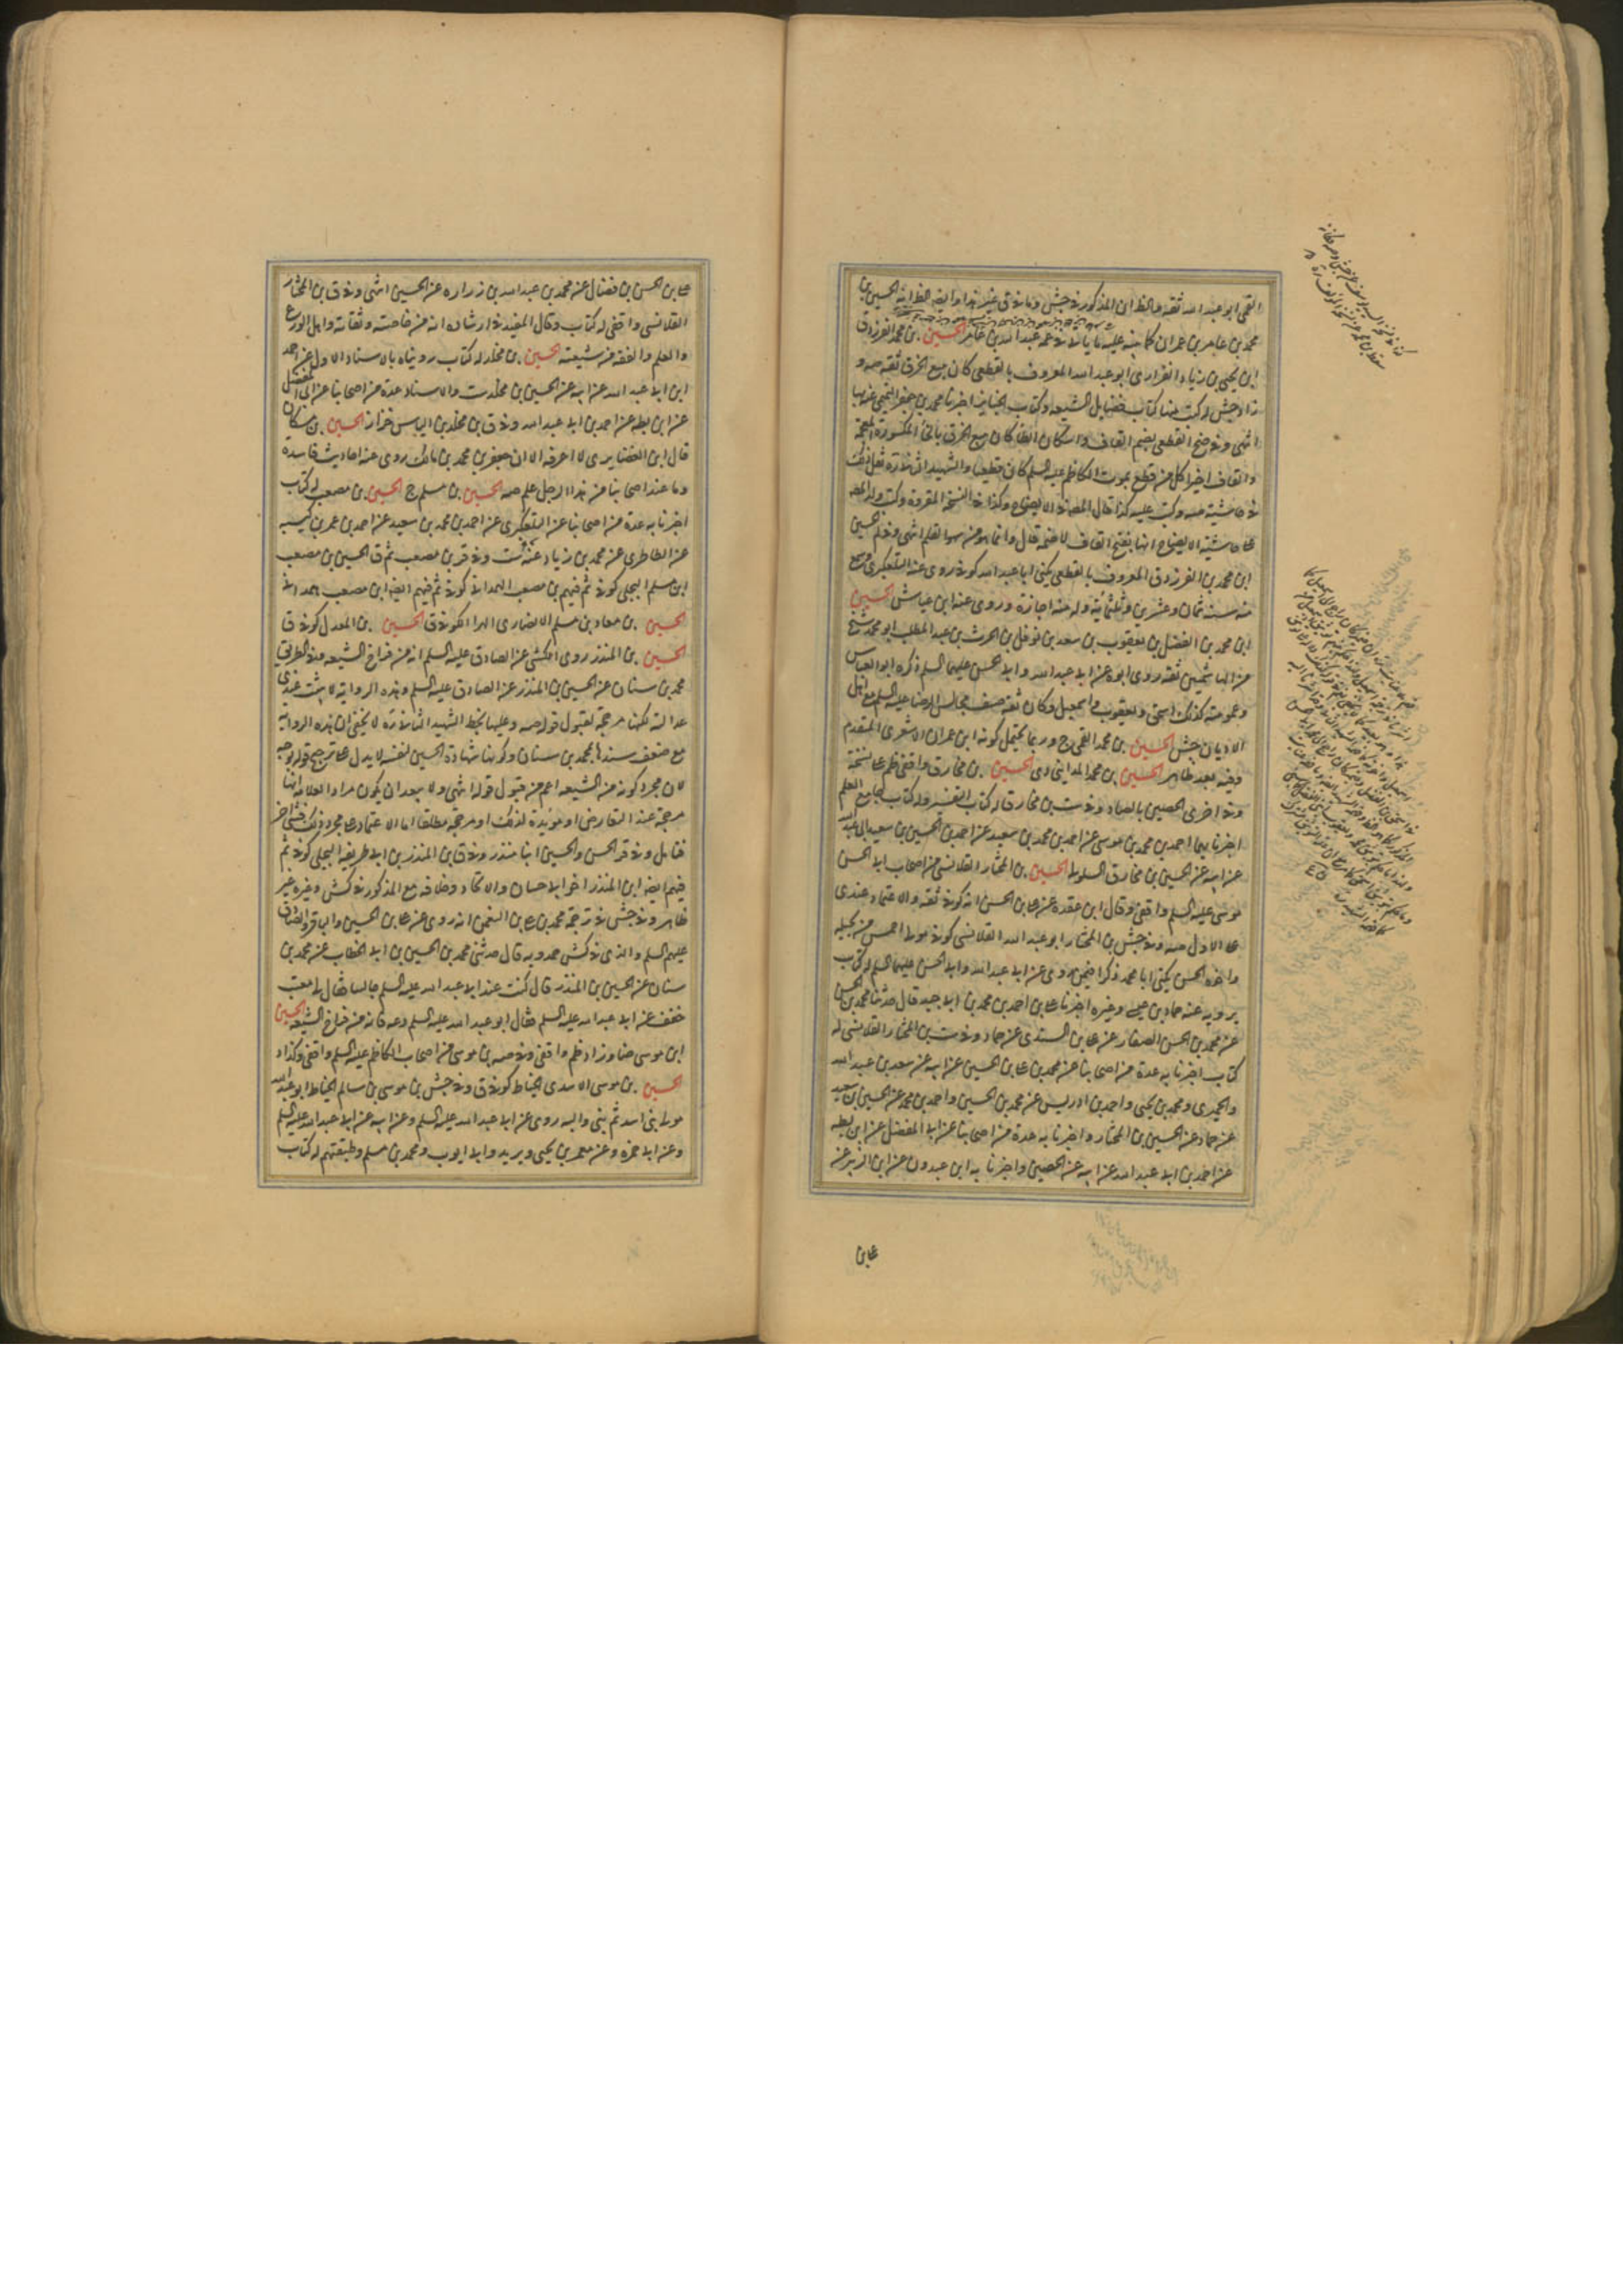 القمي ابو عبد الله ثقة والظ ان المذكور في جش وما في ق غير هذا وايضا الظ انه الحسين بن
محمد بن عامر بن عمران كما ينبه عليه ما ياتي في عمه عبد الله بن عامر الحسين بن محمد الفرزدق
ابن يحيى بن زياد الفزاري ابو عبد الله المعروف بالقطعي كان يبيع الخرق ثقة صه و
زاد جش له كتب منها كتاب فضايل الشيعة وكتاب الجنايز اخبرنا محمد بن جعفر التميمي عنه بها
انتهى وفي ضح القطعي بضم القاف واسكان الطا كان يبيع الخرق بالخا المكسورة المعجمة
والقاف اخيرا كل من قطع بموت الكاظم عليه السلم كان قطعيا والشهيد الثاني ره نقل ذلك
في حاشيته صه وكتب عليه كذا قال المص في الايضاح وكذا في النسخة المقروة وكتب ولد المص
على حاشية الايضاح انها بفتح القاف لا ضمه قال وانما هو من سهو القلم انتهى وفي لم الحسين
ابن محمد بن الفرزدق المعروف بالقطعي يكنى ابا عبد الله كوفي روى عنه التلعكبري وسمع
منه سنة ثمان وعشرين وثلثمائة وله منه اجازة وروى عنه ابن عياش الحسين
ابن محمد بن الفضل بن يعقوب بن سعد بن نوفل بن الحرث بن عبد المطلب ابو محمد شيخ
من الهاشميين ثقة روى ابوه عن ابي عبد الله وابي الحسن عليهما السلم ذكره ابو العباس
وعمومته كذلك اسحق ويعقوب واسمعيل وكان ثقة صنف مجالس الرضا عليه السلم مع اهل
الاديان جش الحسين بن محمد القمي ج وربما يحتمل كونه ابن عمران الاشعري المتقدم
وفيه بعد ظاهر الحسين بن محمد المدايني دي الحسين بن مخارق واقفي ظم على نسخة
وفي اخرى الحصين بالصاد وفي ست بن مخارق له كتاب التفسير وله كتاب جامع العلم
اخبرنا بهما احمد بن محمد بن موسى عن احمد بن محمد بن سعيد عن احمد بن الحسين بن سعيد ابي عبد الله
عن ابيه عن الحسين بن مخارق السلولي الحسين بن المختار القلانسي من اصحاب ابي الحسن
موسى عليه السلم واقفي وقال ابن عقدة عن علي بن الحسن انه كوفي ثقة والاعتماد عندي
على الاول صه وفي جش بن المختار ابو عبد الله القلانسي كوفي مولى احمس من بجيلة
واخوه الحسن يكنى ابا محمد ذكرا فيمن روى عن ابي عبد الله وابي الحسن عليهما السلم له كتاب
يرويه عنه حماد بن عيسى وغيره اخبرنا علي بن احمد بن محمد بن ابي جيد قال حدثنا محمد بن الحسن
عن محمد بن الحسن الصفار عن علي بن السندي عن حماد وفي ست بن المختار القلانسي له
كتاب اخبرنا به عدة من اصحابنا عن محمد بن علي بن الحسين عن ابيه عن سعد بن عبد الله
والحميري ومحمد بن يحيى واحمد بن ادريس عن محمد بن الحسين واحمد بن محمد عن الحسين بن سعيد
عن حماد عن الحسين بن المختار واخبرنا به عدة من اصحابنا عن ابي المفضل عن ابن بطة
عن احمد بن ابي عبد الله عن ابيه عن الحصين واخبرنا به ابن عبدون عن ابن الزبير عن
علي بن
علي بن الحسن بن فضال عن محمد بن عبد الله بن زرارة عن الحسين انتهى وفي ق بن المختار
القلانسي واقفي له كتاب وقال المفيد في ارشاده انه من خاصته وثقاته واهل الورع
والعلم والفقه من شيعته الحسين بن مخلد له كتاب رويناه بالاسناد الاول عن احمد
ابن ابي عبد الله عن ابيه عن الحسين بن مخلد ست والاسناد عدة من اصحابنا عن ابي المفضل
عن ابن بطة عن احمد بن ابي عبد الله وفي ق بن مخلد بن الياس خزاز الحسين بن مسكان
قال ابن الغضايري لا اعرفه الا ان جعفر بن محمد بن مالك روى عنه احاديث فاسدة
وما عند اصحابنا من هذا الرجل علم صه الحسين بن مسلم ج الحسين بن مصعب له كتاب
اخبرنا به عدة من اصحابنا عن التلعكبري عن احمد بن محمد بن سعيد عن احمد بن عمر بن كيسبه
عن الطاطري عن محمد بن زياد عنه ست وفي قر بن مصعب ثم ق الحسين بن مصعب
ابن مسلم البجلي كوفي ثم فيهم بن مصعب الهمداني كوفي ثم فيهم ايضا ابن مصعب الهمداني
الحسين بن معاذ بن مسلم الانصاري الهراء الكوفي ق الحسين بن المعدل كوفي ق
الحسين بن المنذر روى الكشي عن الصادق عليه السلم انه من فراخ الشيعة وفي الطريق
محمد بن سنان عن الحسين بن المنذر عن الصادق عليه السلم وهذه الرواية لا يثبت عندي
عدالته لكنها مرجحة لقبول قوله صه وعليها بخط الشهيد الثاني ره لا يخفى ان هذه الرواية
مع ضعف سندها بمحمد بن سنان وكونها شهادة الحسين لنفسه لا يدل على ترجيح قوله بوجه
لان مجرد كونه من الشيعة اعم من قبول قوله انتهى ولا يبعد ان يكون مراد العلامة انها
مرجحة عند التعارض او مؤيدة لذلك او مرجحة مطلقا اما الاعتماد على مجرد ذلك فشي اخر
فتامل وفي قر الحسن والحسين ابنا منذر وفي ق بن المنذر بن ابي طريفة البجلي كوفي ثم
فيهم ايضا ابن المنذر اخو ابي حسان والاتحاد وخلافه مع المذكور في كش وغيره غير
ظاهر وفي جش في ترجمة محمد بن علي بن النعمن انه روى عن علي بن الحسين والباقر والصادق
عليهم السلم والذي في كش حمدويه قال حدثني محمد بن الحسين بن ابي الخطاب عن محمد بن
سنان عن الحسين بن المنذر قال كنت عند ابي عبد الله عليه السلم جالسا فقال لي معتب
خفف عن ابي عبد الله عليه السلم فقال ابو عبد الله عليه السلم دعه فانه من فراخ الشيعة الحسين
ابن موسى ضا وزاد ظم واقفي وفي صه بن موسى من اصحاب الكاظم عليه السلم واقفي وكذا د
الحسين بن موسى الاسدي الحناط كوفي ق وفي جش بن موسى بن سالم الحناط ابو عبد الله
مولى بني اسد ثم بني والبه روى عن ابي عبد الله عليه السلم وعن ابيه عن ابي عبد الله عليه السلم
وعن ابي حمزة وعن معمر بن يحيى وبريد وابي ايوب ومحمد بن مسلم وطبقتهم له كتاب